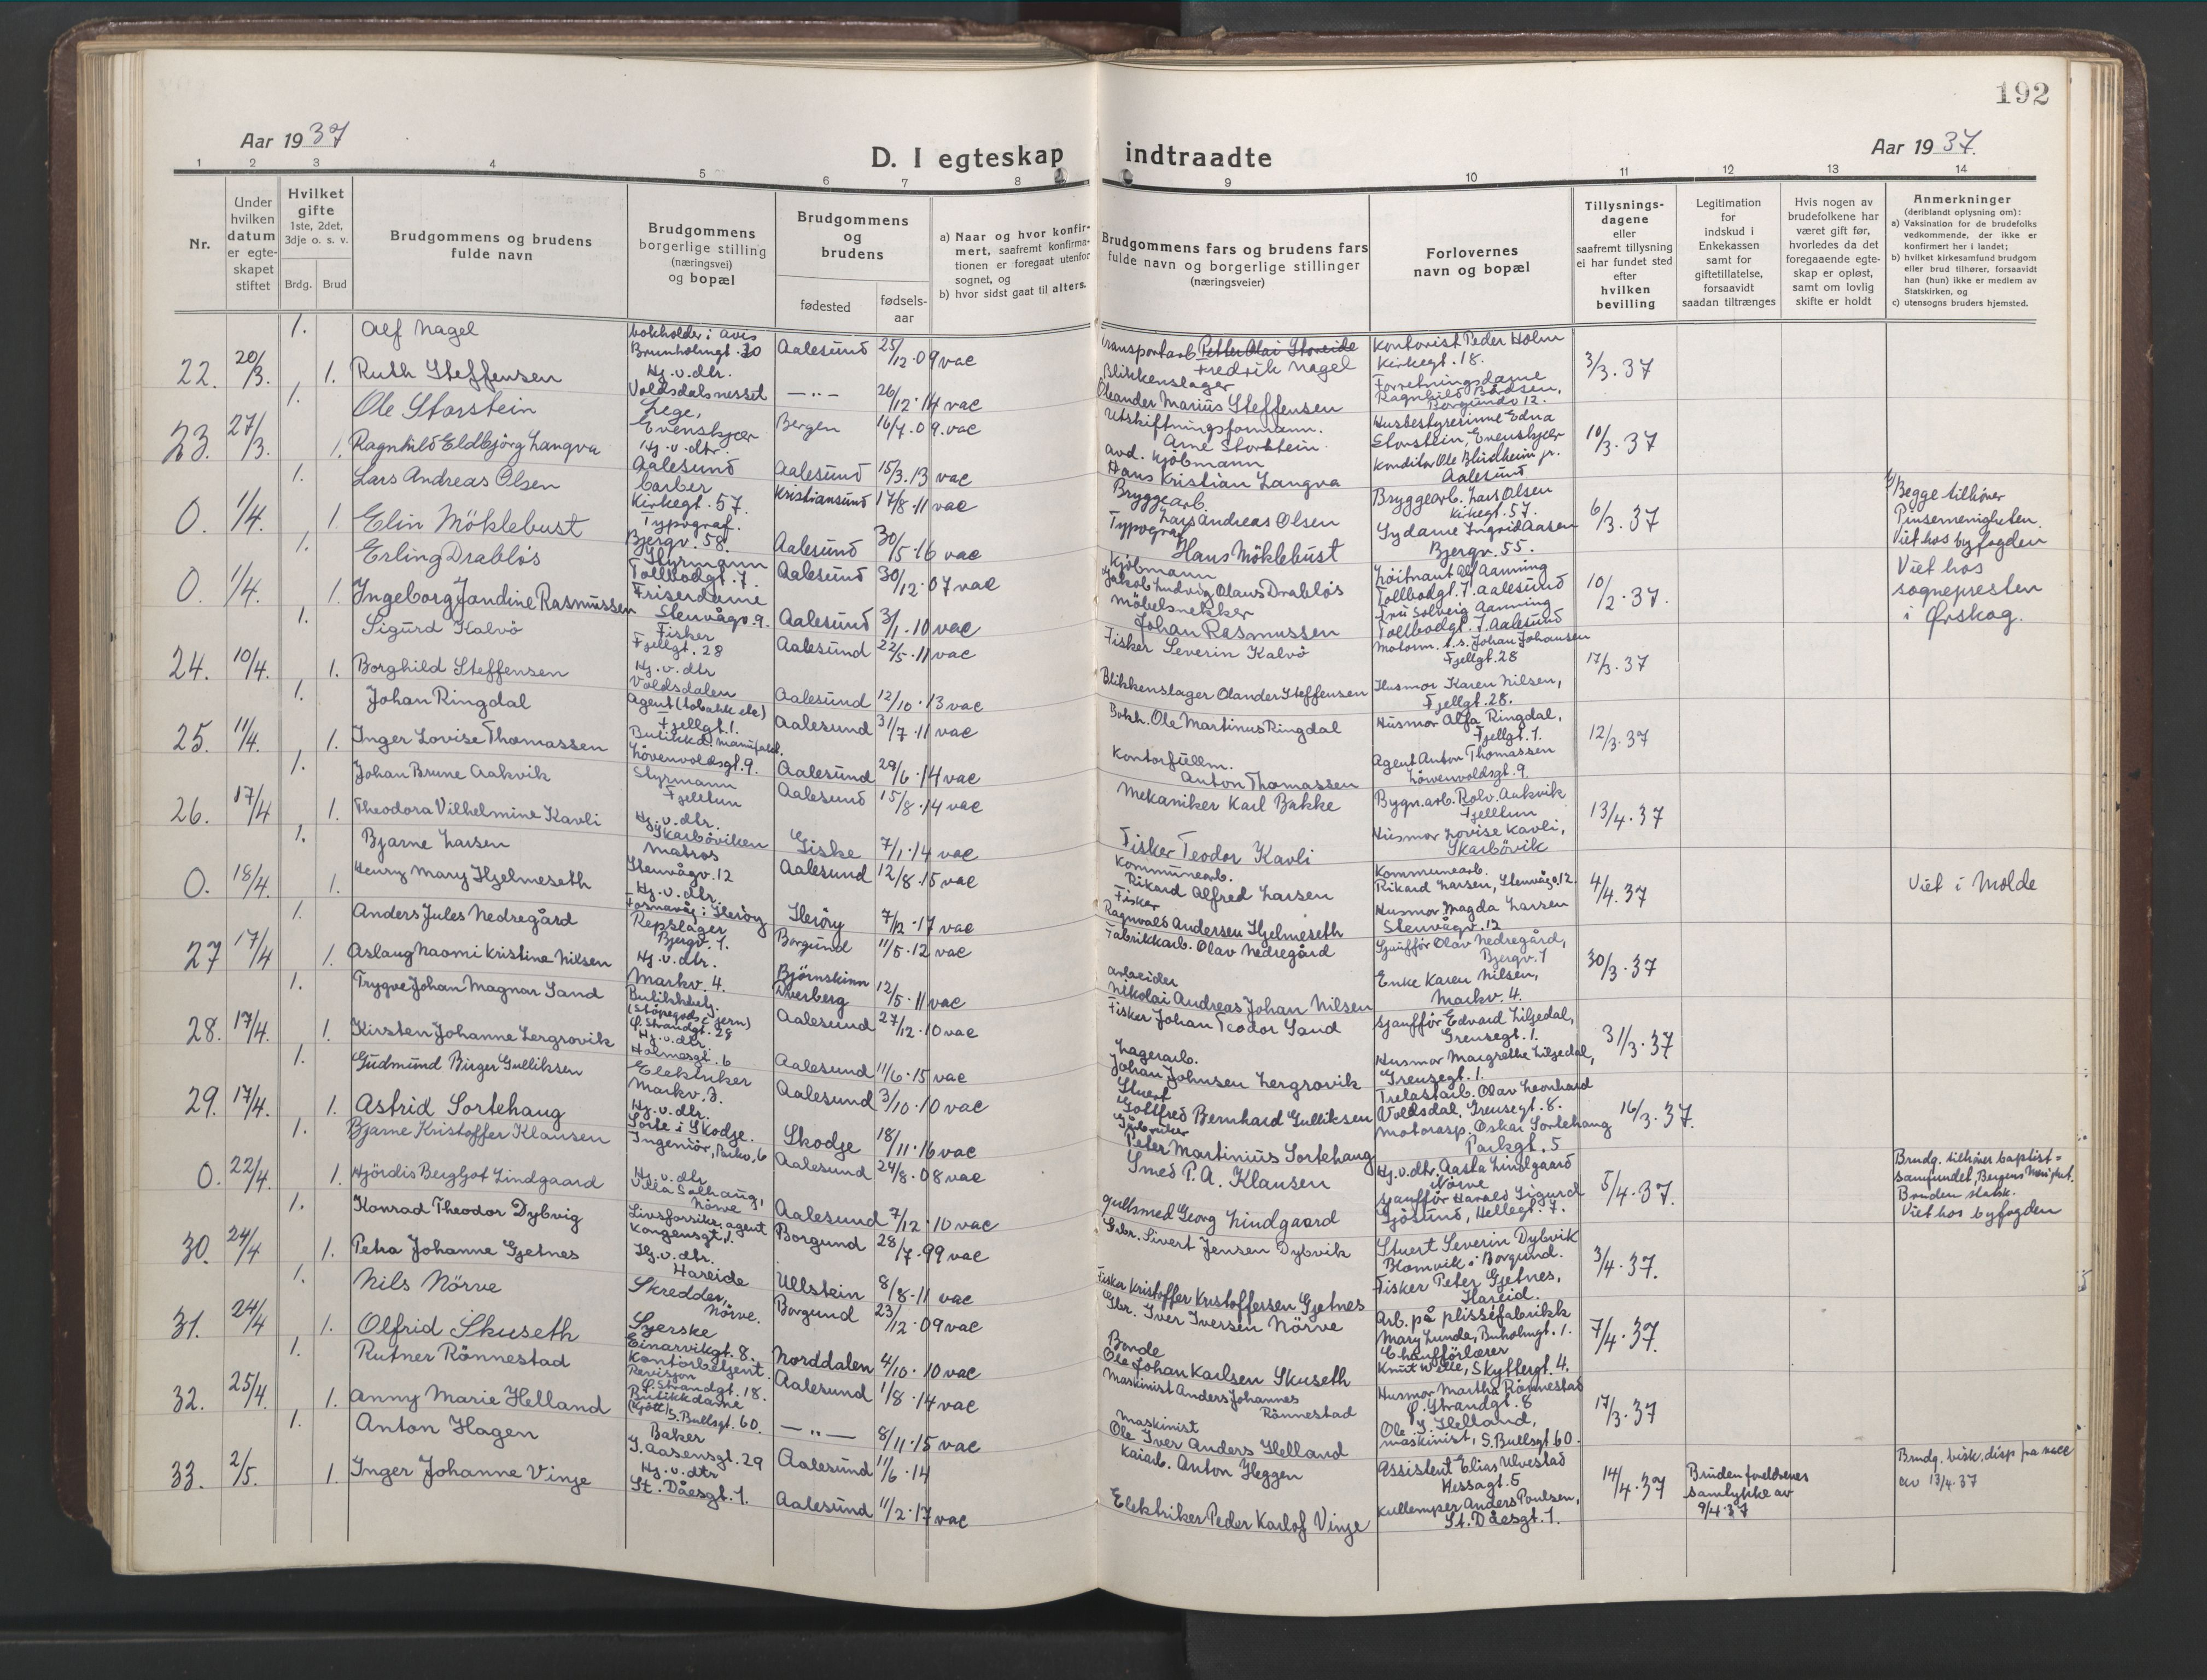 192
Aar 1937
D. I egteskap indtraadte
Aar 1937.
1 2 3 4 5 6 7 8 9 10 11 12 13 14
Nr.
Under hvilken datum er egte-skapet stiftet
Hvilket gifte
1ste, 2det, 3dje o. s. v.
Brdg. Brud
Brudgommens og brudens fulde navn
Brudgommens borgerlige stilling (næringsvei) og bopæl
Brudgommens og brudens
fødested
fødsels-aar
a) Naar og hvor konfir-mert, saafremt konfirma-tionen er foregaat utenfor sognet, og
b) hvor sidst gaat til alters.
Brudgommens fars og brudens fars fulde navn og borgerlige stillinger (næringsveier)
Forlovernes navn og bopæl
Tillysnings-dagene eller saafremt tillysning ei har fundet sted efter hvilken bevilling
Legitimation for indskud i Enkekassen samt for giftetillatelse, forsaavidt saadan tiltrænges
Hvis nogen av brudefolkene har været gift før, hvorledes da det foregaaende egte-skap er opløst, samt om lovlig skifte er holdt
Anmerkninger
(deriblandt oplysning om):
a) Vaksination for de brudefolks vedkommende, der ikke er konfirmert her i landet;
b) hvilket kirkesamfund brudgom eller brud tilhører, forsaavidt han (hun) ikke er medlem av Statskirken, og
c) utensogns bruders hjemsted.
22. 20/3. 1. Alf Nagel
bokholder i Avis
Brunholmgt. 30
Aalesund 25/12.09 vac
Transportarb. Petter Olai Storeide
Fredrik Nagel
Kontorist Peder Holm
Kirkegt. 18.
3/3.37
1. Ruth Steffensen
Hj.v.dtr.
Voldsdalsnesset
— " — 26/12.14 vac
Blikkenslager
Oleander Marius Steffensen
Forretningsdagme
Ragnhild Bårdsen,
Borgundv 12.
23. 27/3. 1. Ole Storstein
Lege,
Evenskjær
Bergen 16/7.09. vac
Utskiftningsformann.
Arne Storstein
Husbestyrerinne Edna
Storstein, Evenskjær
10/3.37
1. Ragnhild Eldbjörg Langva
Hj.v.dtr.
Aalesund
Aalesund 15/3.13 vac
avd. kjöbmann
Hans Kristian Langva
Konditor Ole Blindheim jr.
Aalesund
0. 1/4. 1. Lars Andreas Olsen
barber
Kirkegt. 57.
Kristiansund 17/8.11 vac
Bryggearb.
Lars Andreas Olsen
Bryggearb. Lars Olsen
Kirkegt. 57.
6/3.37
Begge tilhörer
Pinsemenigheten
Viet hos byfogden
1. Elin Möklebust
Typograf.
Bjergv. 58.
Aalesund 30/5.16 vac
Typograf
Hans Möklebust
Sydame Ingrid Aasen
Bjergv. 55.
0. 1/4. 1. Erling Drablös
Styrmann
Tollbodgt. 7.
Aalesund 30/12.07 vac
Kjöbmann
Jakob Ludvig Olaus Drablös
Löitnant Alf Aanning
Tollbodgt. 7. Aalesund
10/2.37.
Viet hos
sognepresten
i Ørskog.
1. Ingeborg Jandine Rasmussen
Friserdame
Stenvågv. 9.
Aalesund 3/1.10 vac
Möbelsnekker
Johan Rasmussen
Fru Solveig Aanning
Tollbodgt. 7. Aalesund
24. 10/4. 1. Sigurd Kalvö
Fisker
Fjellgt. 28
Aalesund 22/5.11 vac
Fisker Severin Kalvö
Motorm. t.s. Johan Johansen
Fjellgt. 28
17/3.37
1. Borghild Steffensen
Hj.v.dtr
Voldsdalen
Aalesund 12/10.13 vac
Blikkenslager Olander Steffensen
Husmor Karen Nilsen,
Fjellgt. 28.
25. 11/4. 1. Johan Ringdal
Agent (tobakk etc)
Fjellgt. 1.
Aalesund 31/7.11 vac
Bokh. Ole Martinus Ringdal
Husmor Alfa Ringdal,
Fjellgt. 1.
12/3.37
1. Inger Lovise Thomassen
Butikkd. manufakt.
Lövenvoldsgt. 9.
Aalesund 29/6.14 vac
Kontorfullm.
Anton Thomassen
Agent Anton Thomassen
Löwenvoldsgt. 9.
26. 17/4 1. Johan Brune Aakvik
Styrmann
Fjelltun
Aalesund 15/8.14 vac
Mekaniker Karl Bakke
Bygn.arb. Rolv. Aakvik
Fjelltun
13/4.37
1. Theodora Vilhelmine Kavli
Hj.v.dtr.
Skarböviken
Giske 7/1.14 vac
Fisker Teodor Kavli
Husmor Lovise Kavli,
Skarbövik
0. 18/4. 1. Bjarne Larsen
Matros
Stenvågv. 12
Aalesund 12/8.15 vac
Kommunearb.
Rikard Alfred Larsen
Kommunearb.
Rikard Larsen, Stenvågv. 12.
4/4.37
Viet i Molde
1. Henny Mary Hjelmeseth
Hj.v.dtr.
Fosnavåg i Heröy
Heröy 7/12.17 vac
Fisker
Ragnvald Andersen Hjelmeseth
Husmor Magda Larsen
Stenvågv. 12
27 17/4 1. Anders Jules Nedregård
Repslager
Bjergv. 1.
Borgund 11/5.12 vac
Fabrikkarb. Olav Nedregård
Sjaufför Olav Nedregård,
Bjergv. 1
30/3.37
1. Aslaug Naomi Kristine Nilsen
Hj.v.dtr.
Markv. 4.
Björnskinn 12/5.11 vac
arbeider
Nikolai Andreas Johan Nilsen
Enke Karen Nilsen,
Markv. 4.
28. 17/4. 1. Trygve Johan Magnar Sand
Butikkbetj.
(Stöpegods i jern)
Ö. Strandgt. 28
Dverberg
Aalesund 27/12.10 vac
Fisker Johan Teodor Sand
Sjauffør Edvard Liljedal,
Grensegt. 1.
31/3.37
1. Kirsten Johanne Lergrovik
Hj.v.dtr.
Holmasgt. 6
Aalesund 11/6.15 vac
Lagerarb.
Johan Johnsen Lergrovik
Husmor Margrethe Liljedal,
Grensegt. 1.
29. 17/4. 1. Gudmund Birger Gulliksen
Elektriker
Markv. 3.
Aalesund 3/10.10 vac
Stuert
Gottfred Bernhard Gulliksen
Trelastarb. Olav Leonhard
Voldsdal, Grensegt. 8.
16/3.37.
1. Astrid Sortehaug
Hj.v.dtr.
Sorte i Skodje.
Skodje 18/11.16 vac
Gårbruker
Peter Martinius Sortehaug
Motorasp. Oskar Sortehaug
Parkgt. 5
0. 22/4. 1. Bjarne Kristoffer Klausen
Ingeniör, Parkv. 6
Aalesund 24/8.08 vac
Smed P. A. Klausen
Hj.v.dtr. Aasta Lindgaard
Nörve
5/4.37.
Brudg. tilhörer baptist=
samfundet, Bergens
Bruden statsk.
Viet hos byfogden
1. Hjördis Bergljot Lindgaard
Hj.v.dtr
Villa Solhaug,
Nörve
Aalesund 7/12.10 vac
Gullsmed Georg Lindgaard
Sjauffør Harald Sigurd
Gjösund, Hellegt. 7.
30. 24/4 1. Konrad Theodor Dybvig
Livsforsikr. agent
Kongensgt. 1.
Borgund 28/7.99 vac
Gbr. Sivert Jensen Dybvik
Stuert Severin Dybvik
Blomvik i Borgund.
3/4.37.
1. Petra Johanne Gjetnes
Hj.v.dtr.
Hareide
Ullstein 8/8.11 vac
Fisker Kristoffer Kristoffersen Gjetnes
Fisker Peter Gjetnes,
Hareid.
31. 24/4 1. Nils Nörve
Skredder,
Nörve.
Borgund 23/12.09 vac
Gbr. Iver Iversen Nörve
Arb. på plisséfabrikk
Mary Lunde, Buholmgt. 1.
7/4.37.
1. Olfrid Skuseth
Syerske
Einarvikgt. 8.
Norddalen 4/10.10 vac
Bonde
Ole Johan Karlsen Skuseth
Chaufförlærer
Knut Wille, Skyttergt. 4.
32. 25/4. 1. Rutner Rönnestad
Kontorbetjent.
Revisjon
Ö. Strandgt. 18.
Aalesund 1/8.14 vac
Maskinist Anders Johannes
Rönnestad
Husmor Martha Rönnestad
Ö. Strandgt. 8
17/3.37
1. Anny Marie Helland
Butikkdame
(kjött) S. Bullsgt. 60.
— " — 8/11.15 vac
Maskinist
Ole Iver Anders Helland
Ole J. Helland,
maskinist, S. Bullsgt 60.
33. 2/5. 1. Anton Hagen
Baker
I. Aasensgt. 29
Aalesund 11/6.14
Kaiarb. Anton Heggen
Assistent Elias Ulvestad
Hessagt. 5
14/4.37
Bruden foreldrenes
samtykke av
9/4.37
Brudg. bisk. disp fra vacc
av 13/4.37
1. Inger Johanne Vinje
Hj.v.dtr
St. Dåesgt. 1.
Aalesund 11/2.17 vac
Elektriker Peder Karlof Vinje
Kullemper Anders Poulsen,
St. Dåesgt. 1.